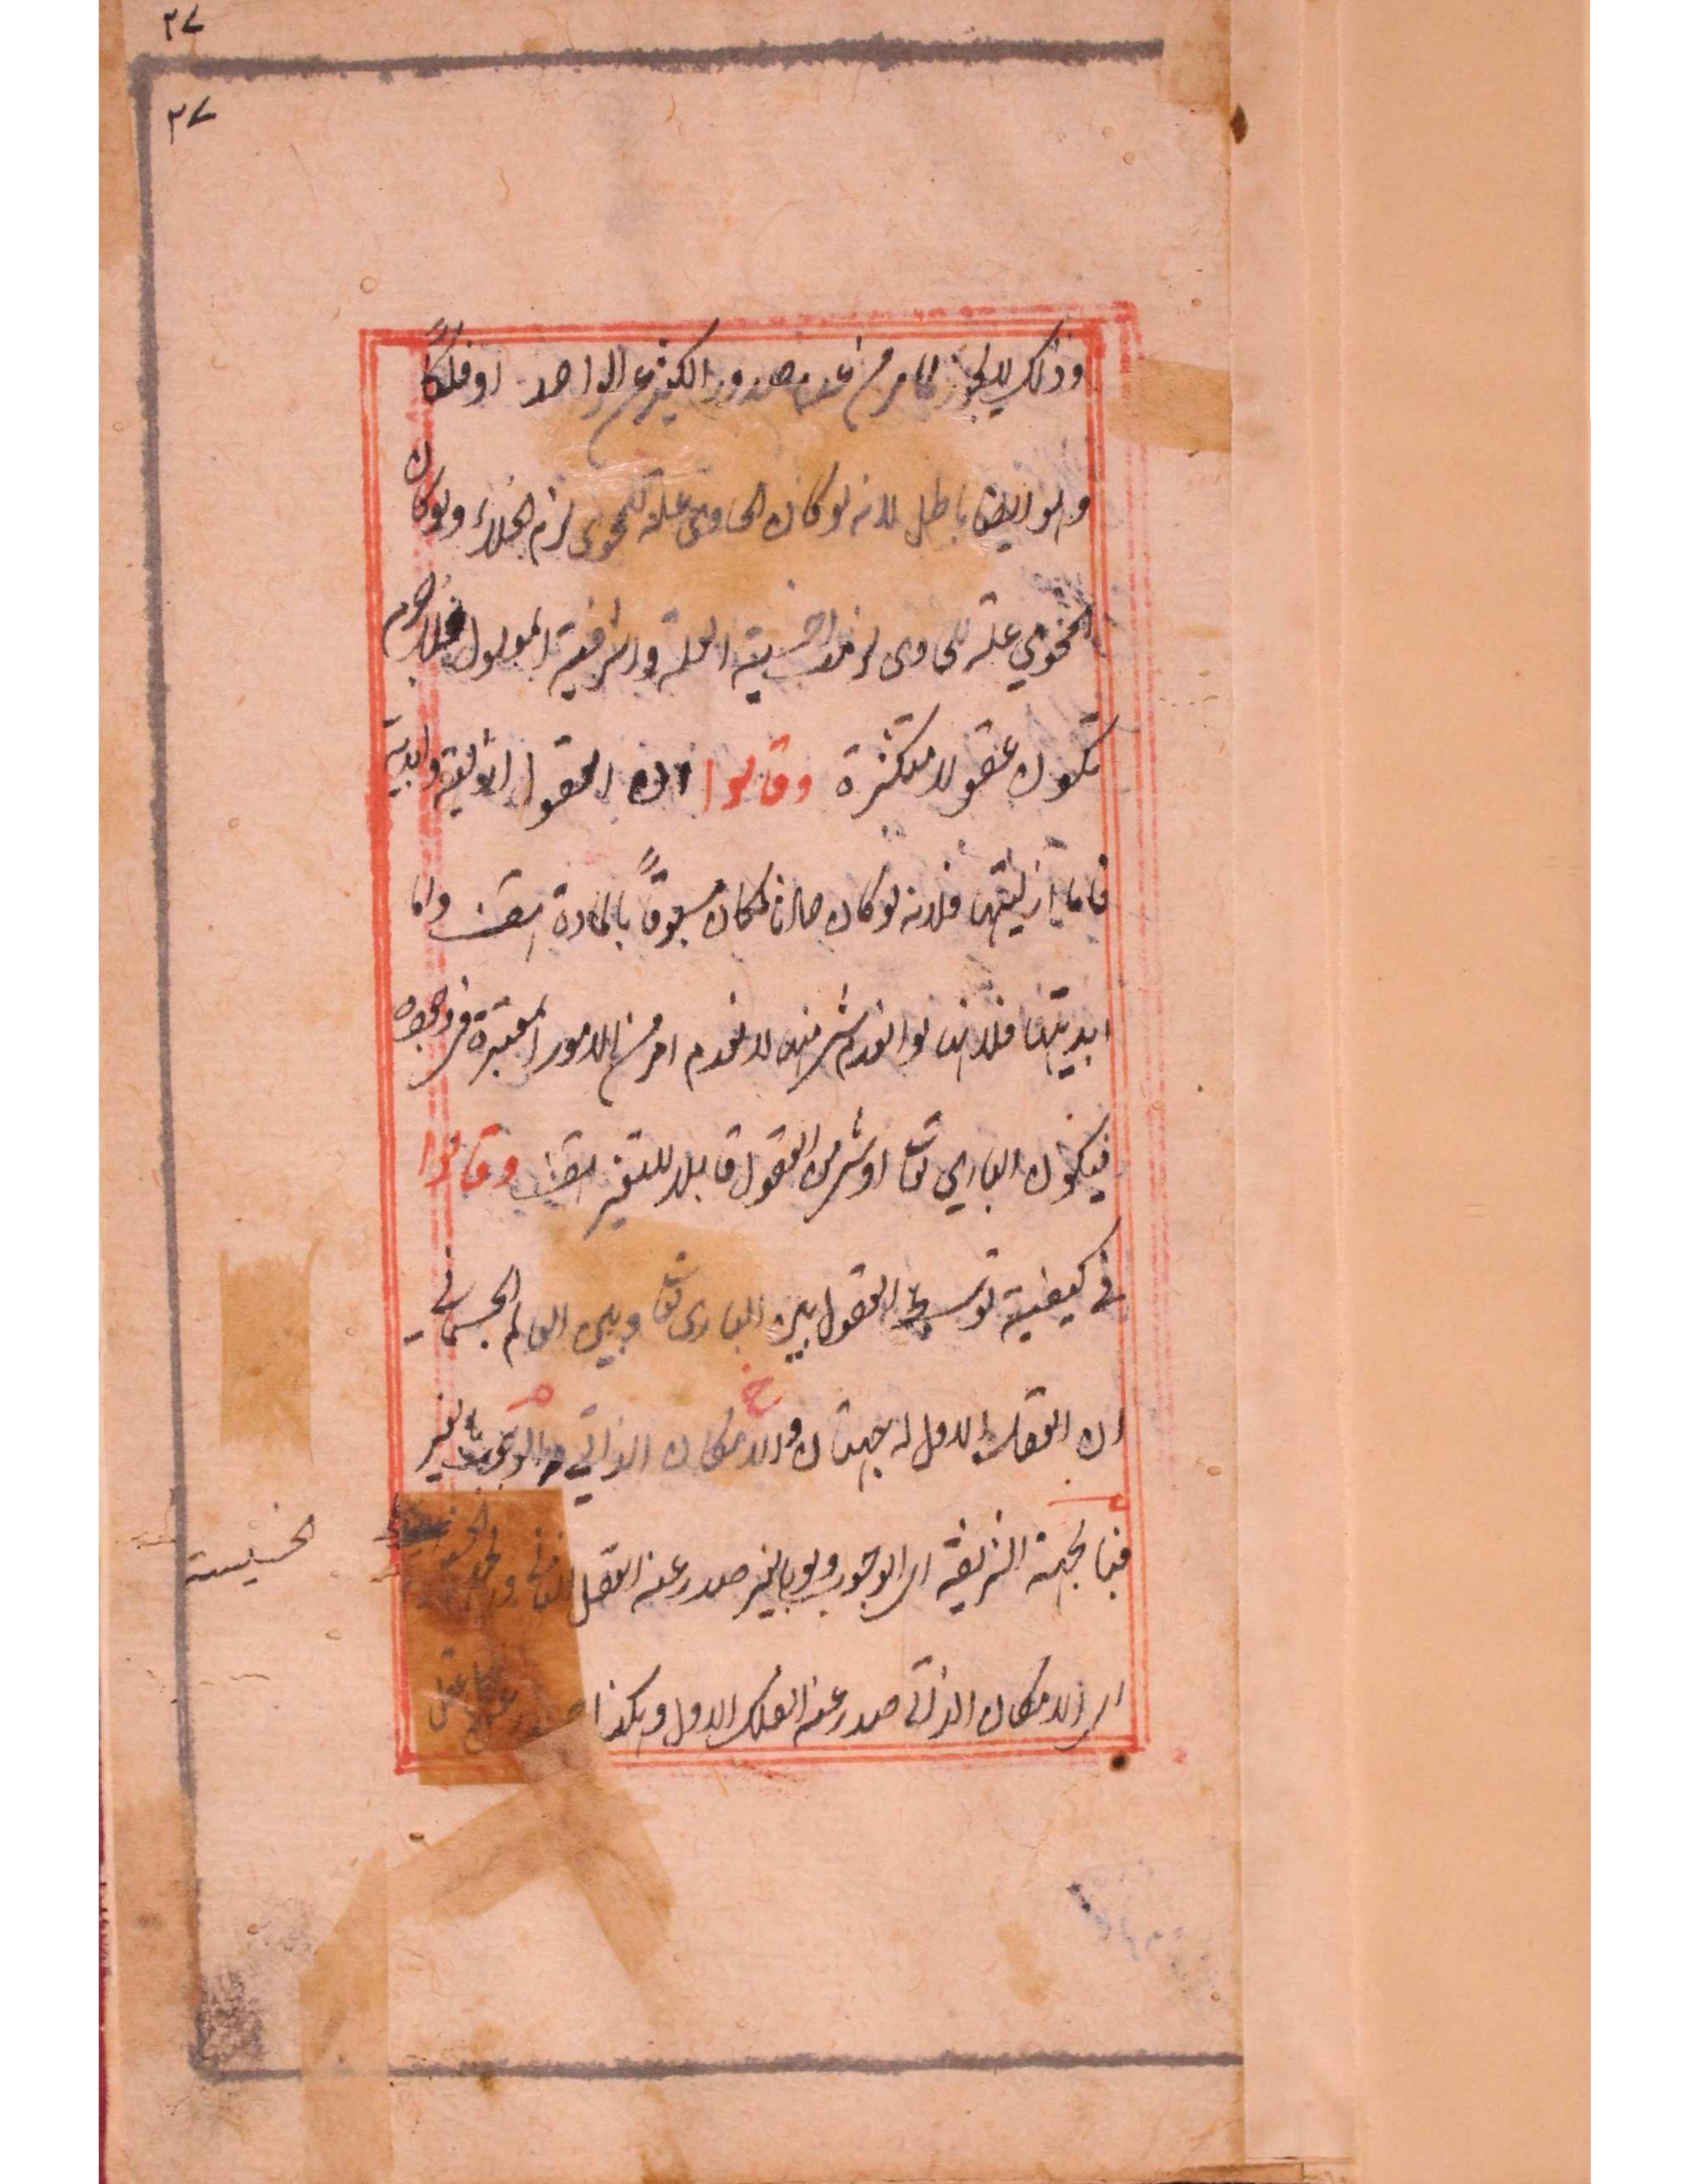 ٣٧
٣٧
وذلك لا يجوز لما مر من عدم صدور الكثير عن الواحد او فلكًا
وهو ايضا باطل لانه لو كان الحاوى علة للمحوى لزم الخلاء ولو كان
المحوي علة للحاوى لزم اخسية العلة واشرفية المعلول فلا جرم
تكون عقولا متكثرة وقالوا ان العقول ازلية وابدية
فاما ازليتها فلانه لو كان حادثا لكان مسبوقًا بالمادة هف واما
ابديتها فلانه لو انعدم شئ منها لانعدم امر من الامور المعتبرة فى وجوده
فيكون البارى تعا او شئ من العقول قابلا للتغير هف وقالوا
فى كيفية توسط العقول بين البارى تعا وبين العالم الجسمانى
ان العقل الاول له جهتان والامكان الذاتى والوجوب بالغير
فبالجهة الشريفة اى الوجوب وهو بالغير صدر عنه العقل الثانى
الخسيسة
اى الامكان الذاتى صدر عنه الفلك الاول وهكذا صدر عن كل عقل